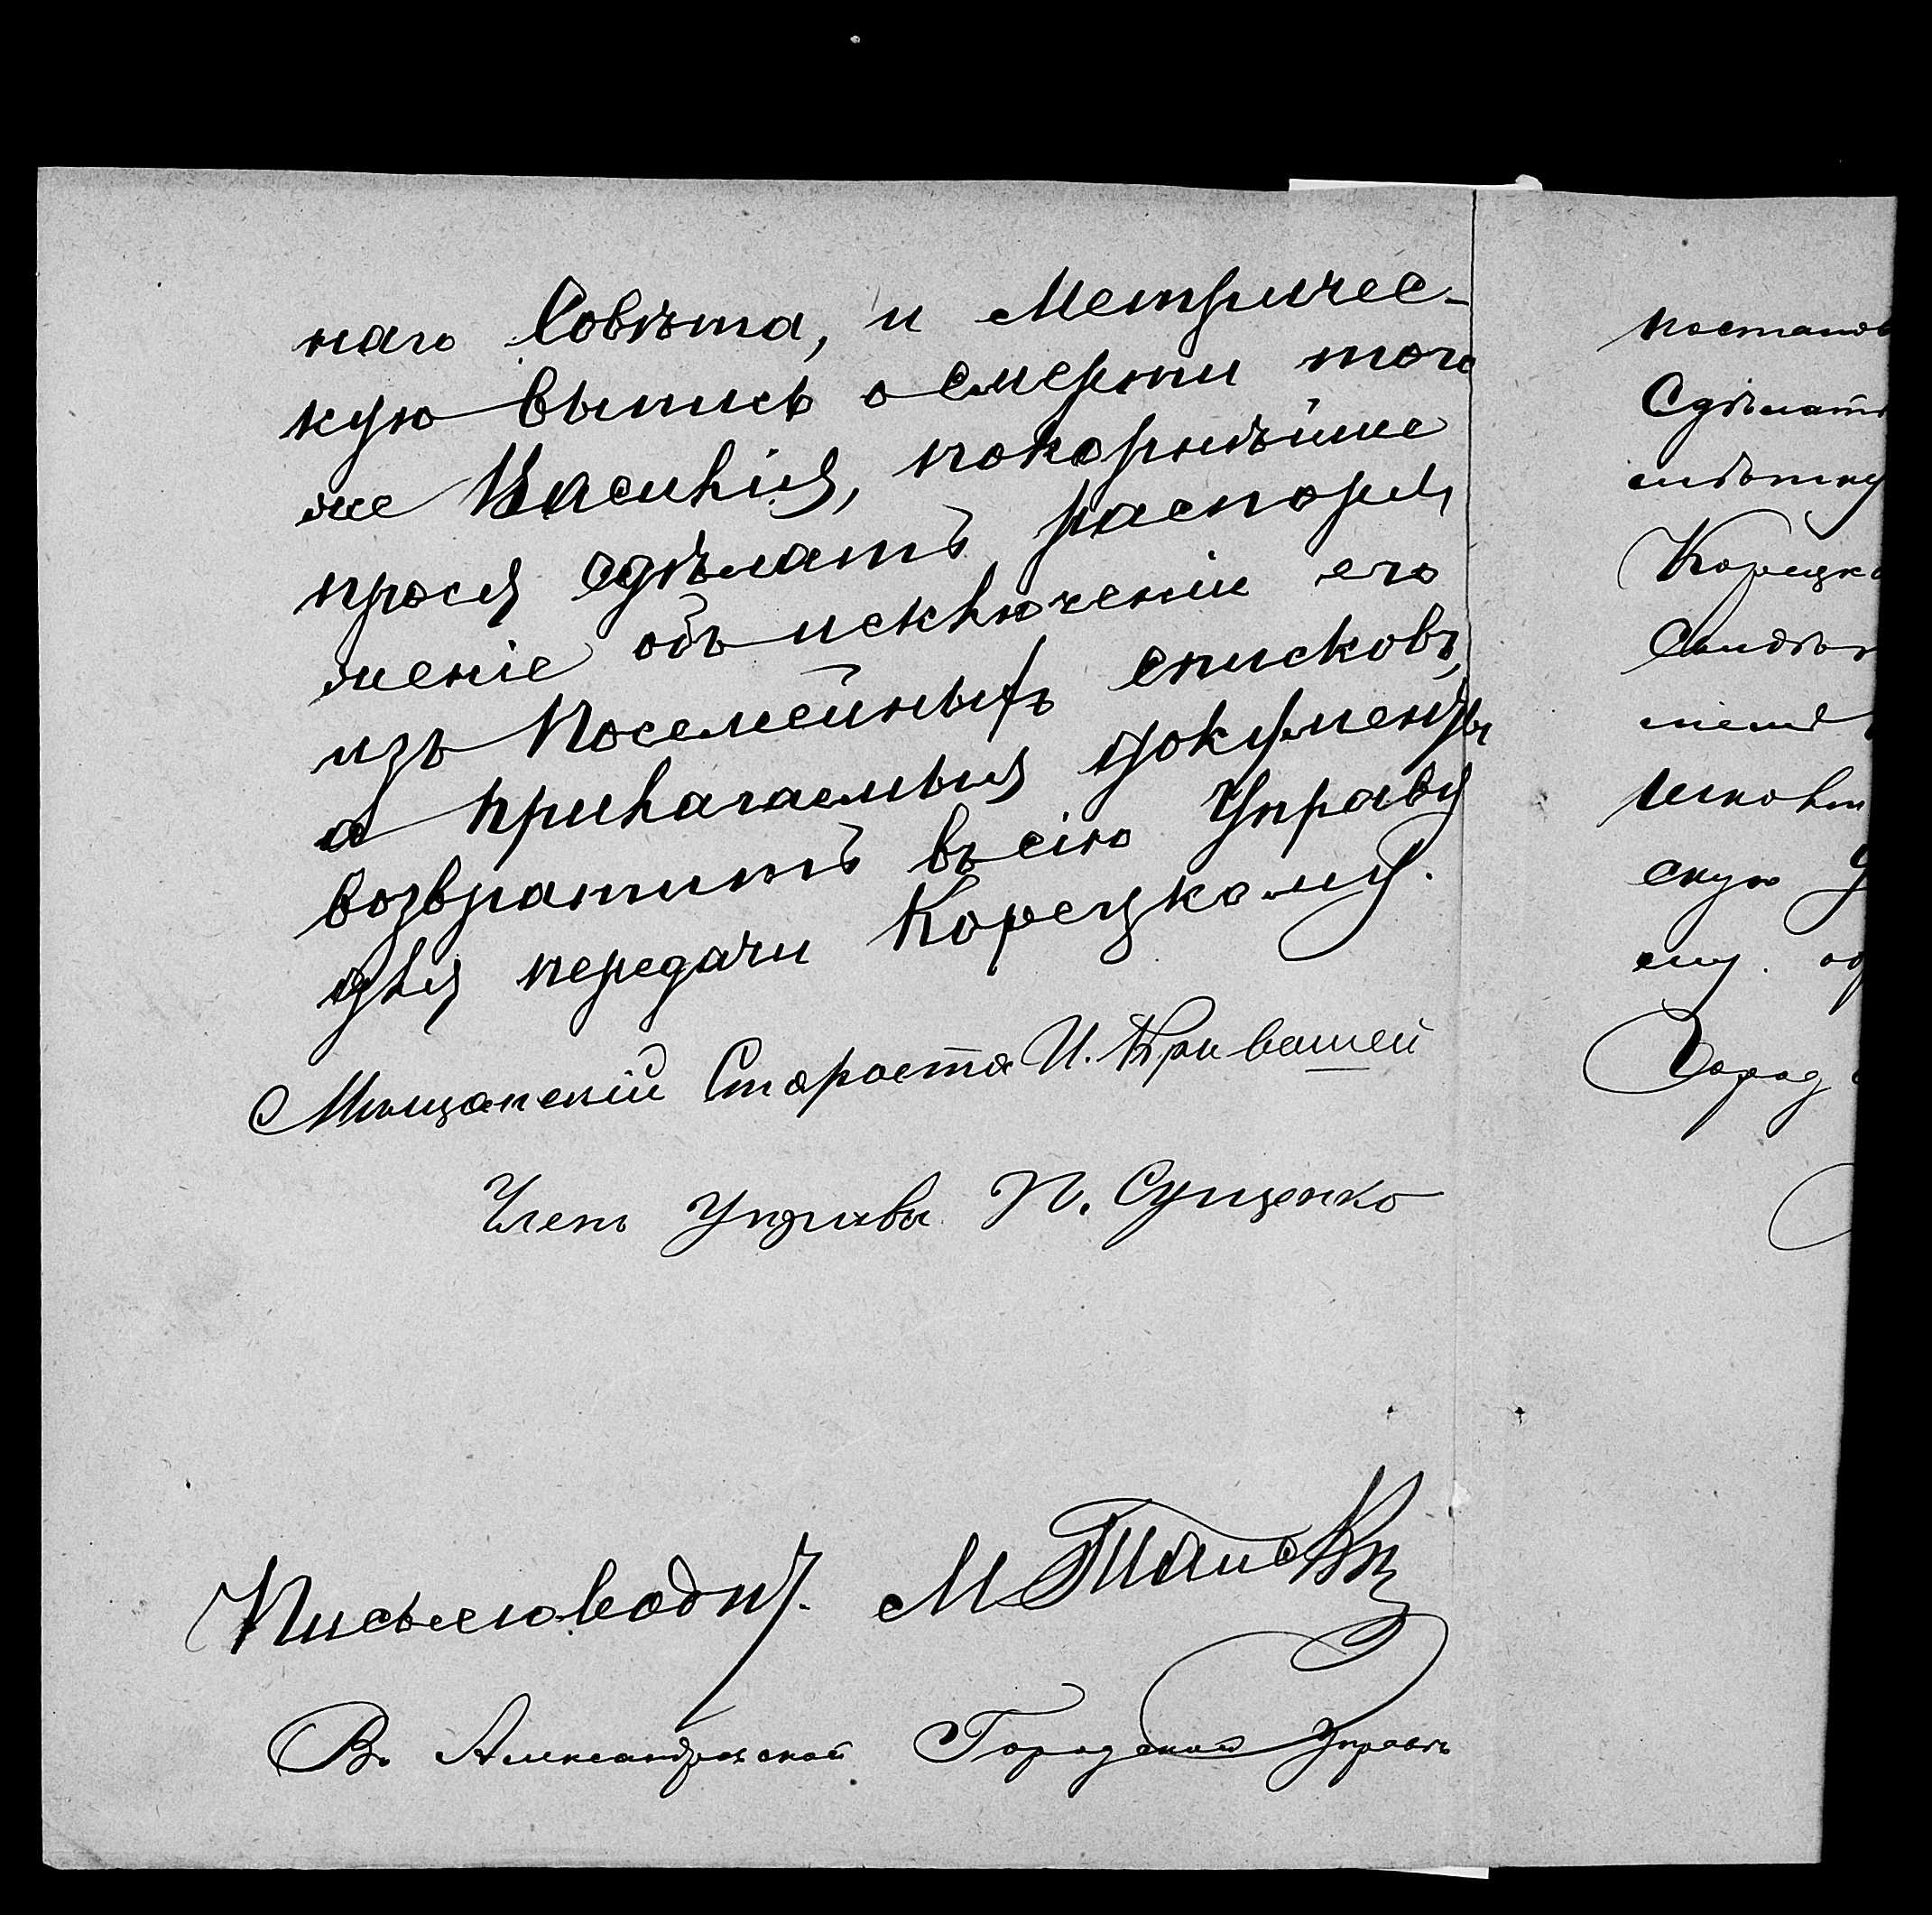 наго Совѣта, и Метричес-
кую выпись о смерти того
же Василія, покорнѣйше
прося сдѣлать распоря
женіе объ исключеніи его
изъ Посемейныхъ списковъ,
а прилагаемыя документы
возвратить въ сію Управу
для передачи Корецкому.
Мѣщанскій Староста И. Кривошей
Членъ Управы П. Сущенко
Письмоводит. М
Въ Александровской Городской Управѣ
постанов
Сдѣлать
мѣтку
Корецко
скую У
ему. од
Город